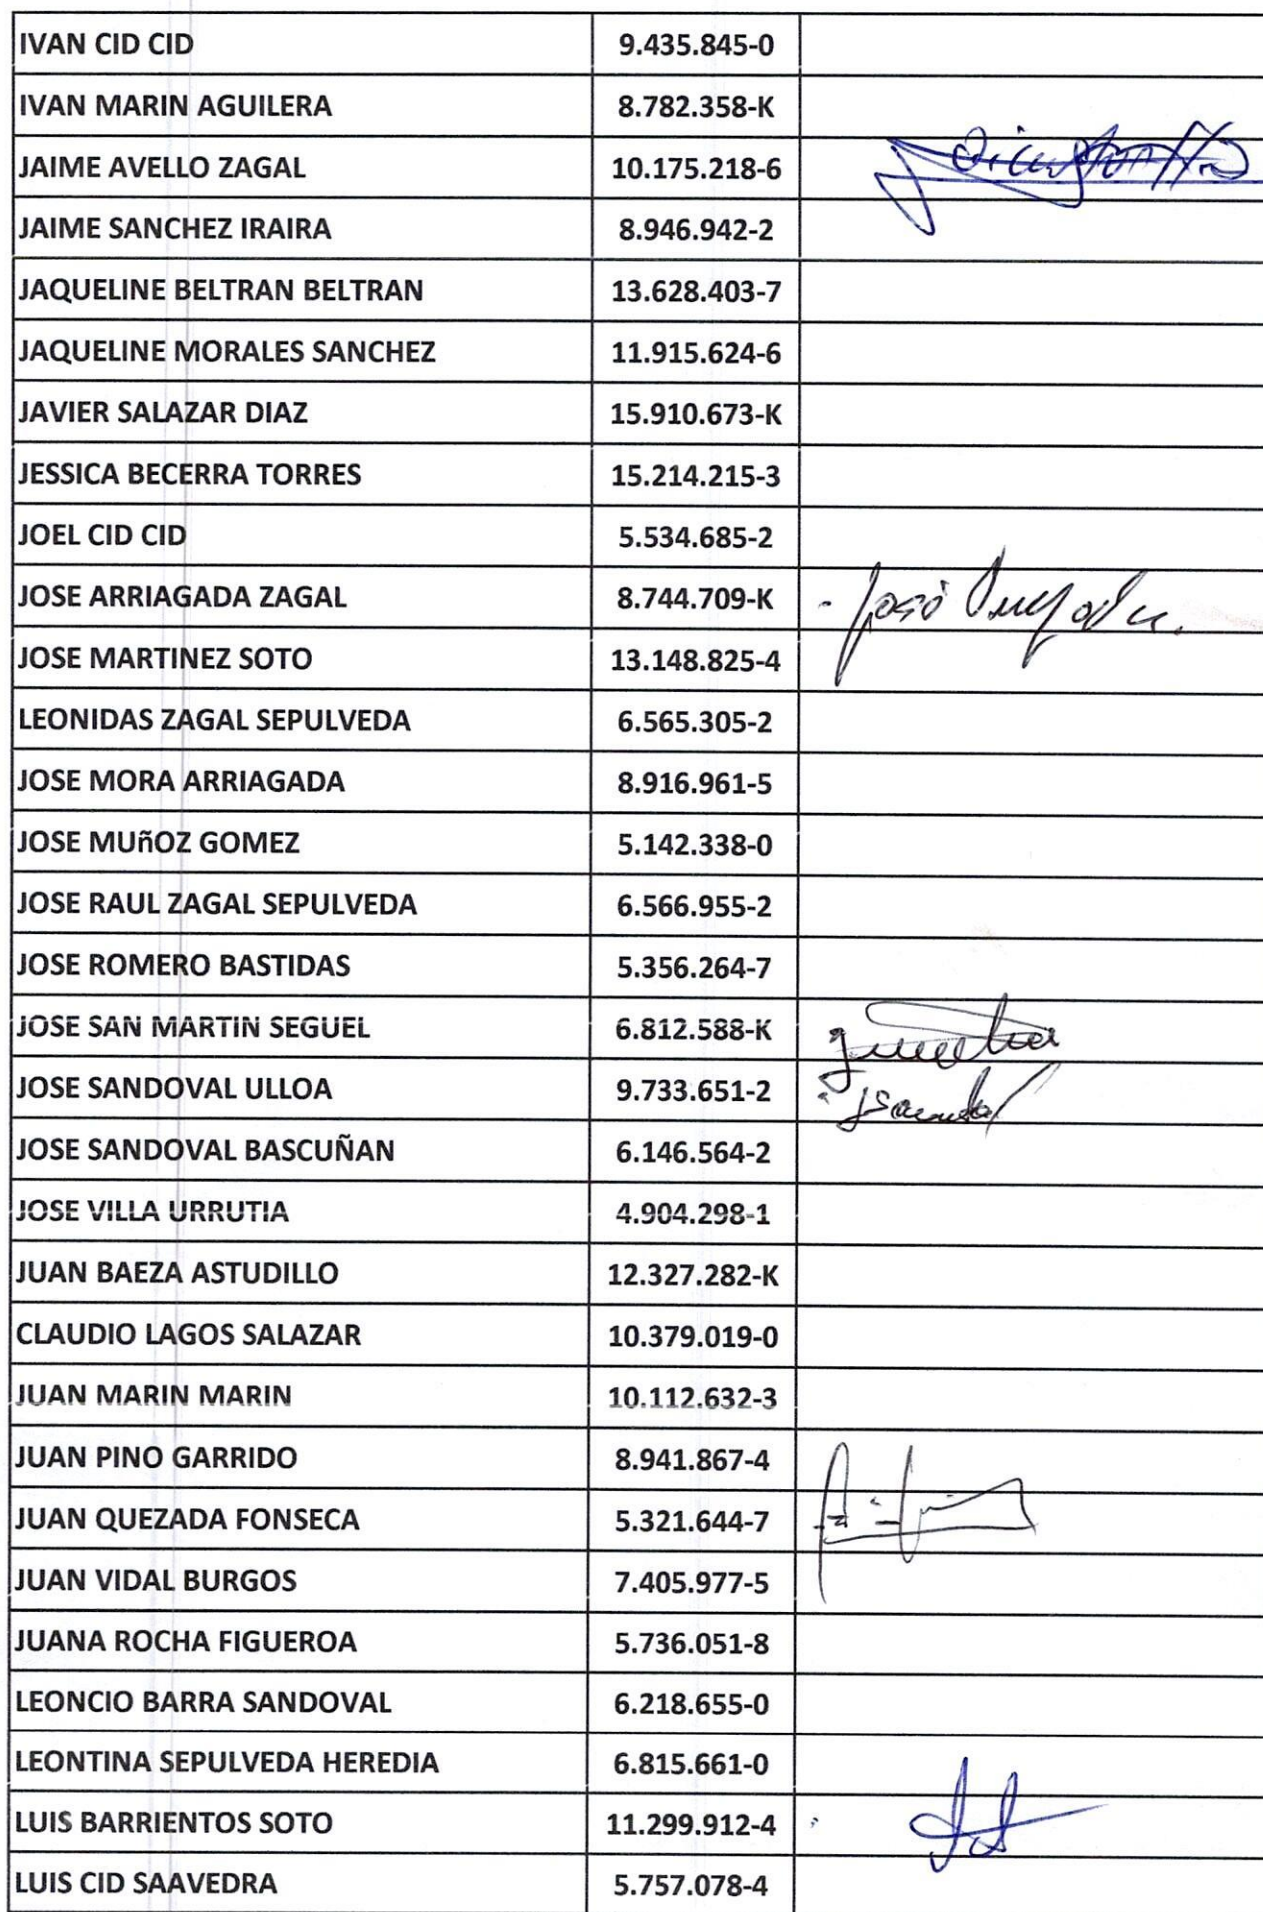 IVAN CID CID 9.435.845-0
IVAN MARIN AGUILERA 8.782.358-K
JAIME AVELLO ZAGAL 10.175.218-6
JAIME SANCHEZ IRAIRA 8.946.942-2
JAQUELINE BELTRAN BELTRAN 13.628.403-7
JAQUELINE MORALES SANCHEZ 11.915.624-6
JAVIER SALAZAR DIAZ 15.910.673-K
JESSICA BECERRA TORRES 15.214.215-3
JOEL CID CID 5.534.685-2
JOSE ARRIAGADA ZAGAL 8.744.709-K José
JOSE MARTINEZ SOTO 13.148.825-4
LEONIDAS ZAGAL SEPULVEDA 6.565.305-2
JOSE MORA ARRIAGADA 8.916.961-5
JOSE MUñOZ GOMEZ 5.142.338-0
JOSE RAUL ZAGAL SEPULVEDA 6.566.955-2
JOSE ROMERO BASTIDAS 5.356.264-7
JOSE SAN MARTIN SEGUEL 6.812.588-K
JOSE SANDOVAL ULLOA 9.733.651-2
JOSE SANDOVAL BASCUÑAN 6.146.564-2
JOSE VILLA URRUTIA 4.904.298-1
JUAN BAEZA ASTUDILLO 12.327.282-K
CLAUDIO LAGOS SALAZAR 10.379.019-0
JUAN MARIN MARIN 10.112.632-3
JUAN PINO GARRIDO 8.941.867-4
JUAN QUEZADA FONSECA 5.321.644-7
JUAN VIDAL BURGOS 7.405.977-5
JUANA ROCHA FIGUEROA 5.736.051-8
LEONCIO BARRA SANDOVAL 6.218.655-0
LEONTINA SEPULVEDA HEREDIA 6.815.661-0
LUIS BARRIENTOS SOTO 11.299.912-4
LUIS CID SAAVEDRA 5.757.078-4